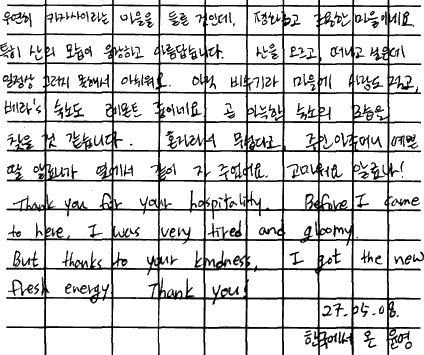 우연히 카자사이라는 마을을 들른 것인데, 평화롭고 조용한 마을이네요.
특히 산의 모습이 웅장하고 아름답습니다. 산을 오르고, 떠나고 싶은데
일정상 그러지 못해서 아쉬워요. 아직 비수기라 마을에 사람도 적고,
베라's 숙소도 리모트 중이네요. 곧 아늑한 숙소의 모습을
찾을 것 같습니다. 혼자라서 무섭다고, 주인아주머니 예쁜
딸 알료나가 옆에서 같이 자 주었어요. 고마워요 알료나!
Thank you for your hospitality. Before I came
to here, I was very tired and gloomy.
But thanks to your kindness, I got the new
fresh energy Thank you!
27.05.08.
한국에서 온 윤영